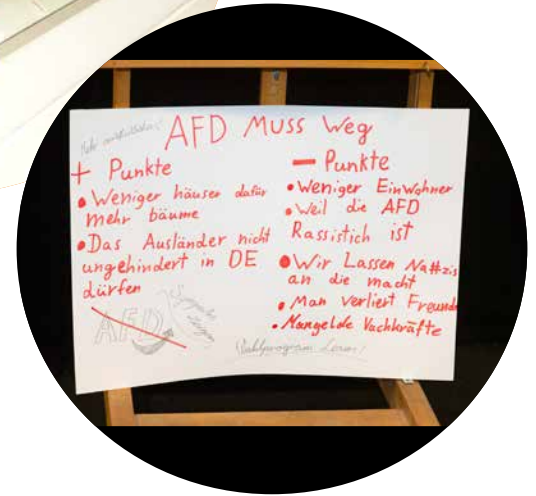 AFD Muss Weg
+ Punkte
• Weniger häuser dafür
mehr bäume
• Das Ausländer nicht
ungehindert in DE
dürfen
AFD
— Punkte
• Weniger Einwohner
• Weil die AFD
Rassistich ist
• Wir Lassen Na##zis
an die macht
• Man verliert Freunde
• Mangelde Vachkräfte